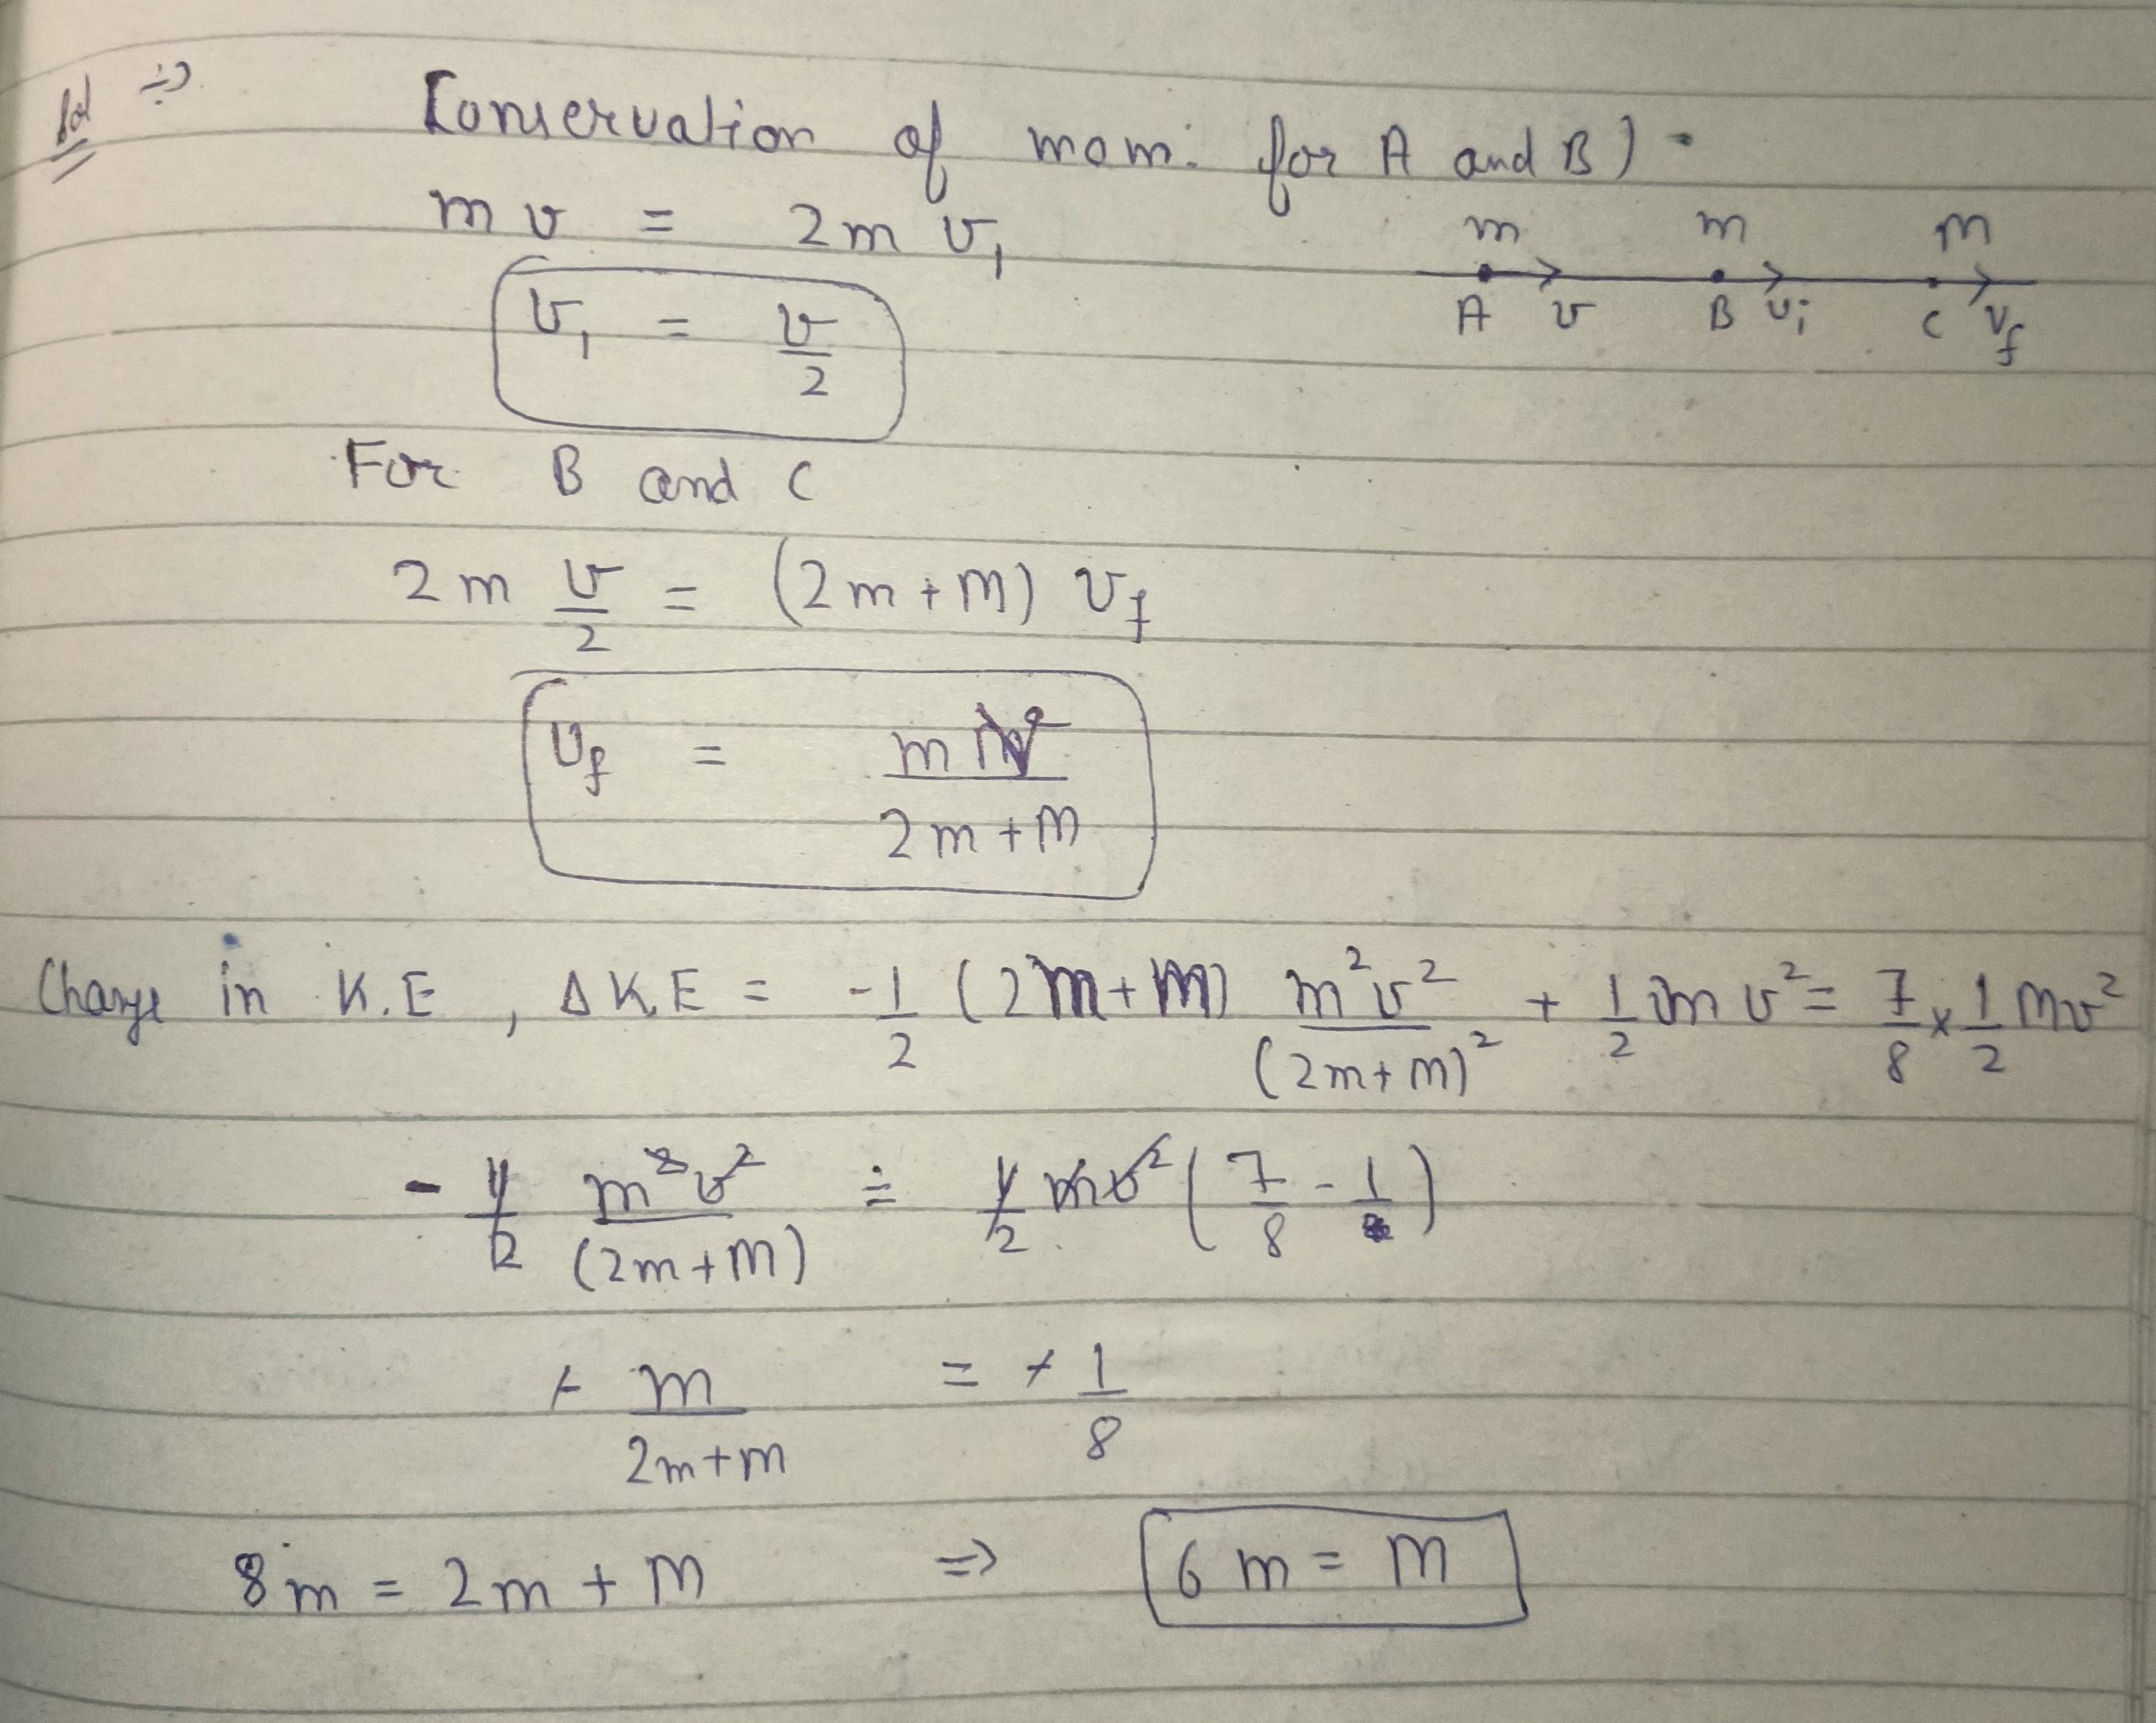 Sol ⇒ Conservation of mom. for A and B) -
m v = 2 m v₁
m m M
A v B vᵢ C v_f
v₁ = v/2
For B and C
2 m v/2 = (2 m + M) v_f
v_f = m v / (2 m + M)
Change in K.E , Δ K.E = - 1/2 (2 m + M) m² v² / (2m + M)² + 1/2 m v² = 7/8 × 1/2 m v²
- 1/2 m² v² / (2m + M) = 1/2 m v² ( 7/8 - 1 )
+ m / (2m + M) = + 1/8
8 m = 2 m + M ⇒ 6 m = M